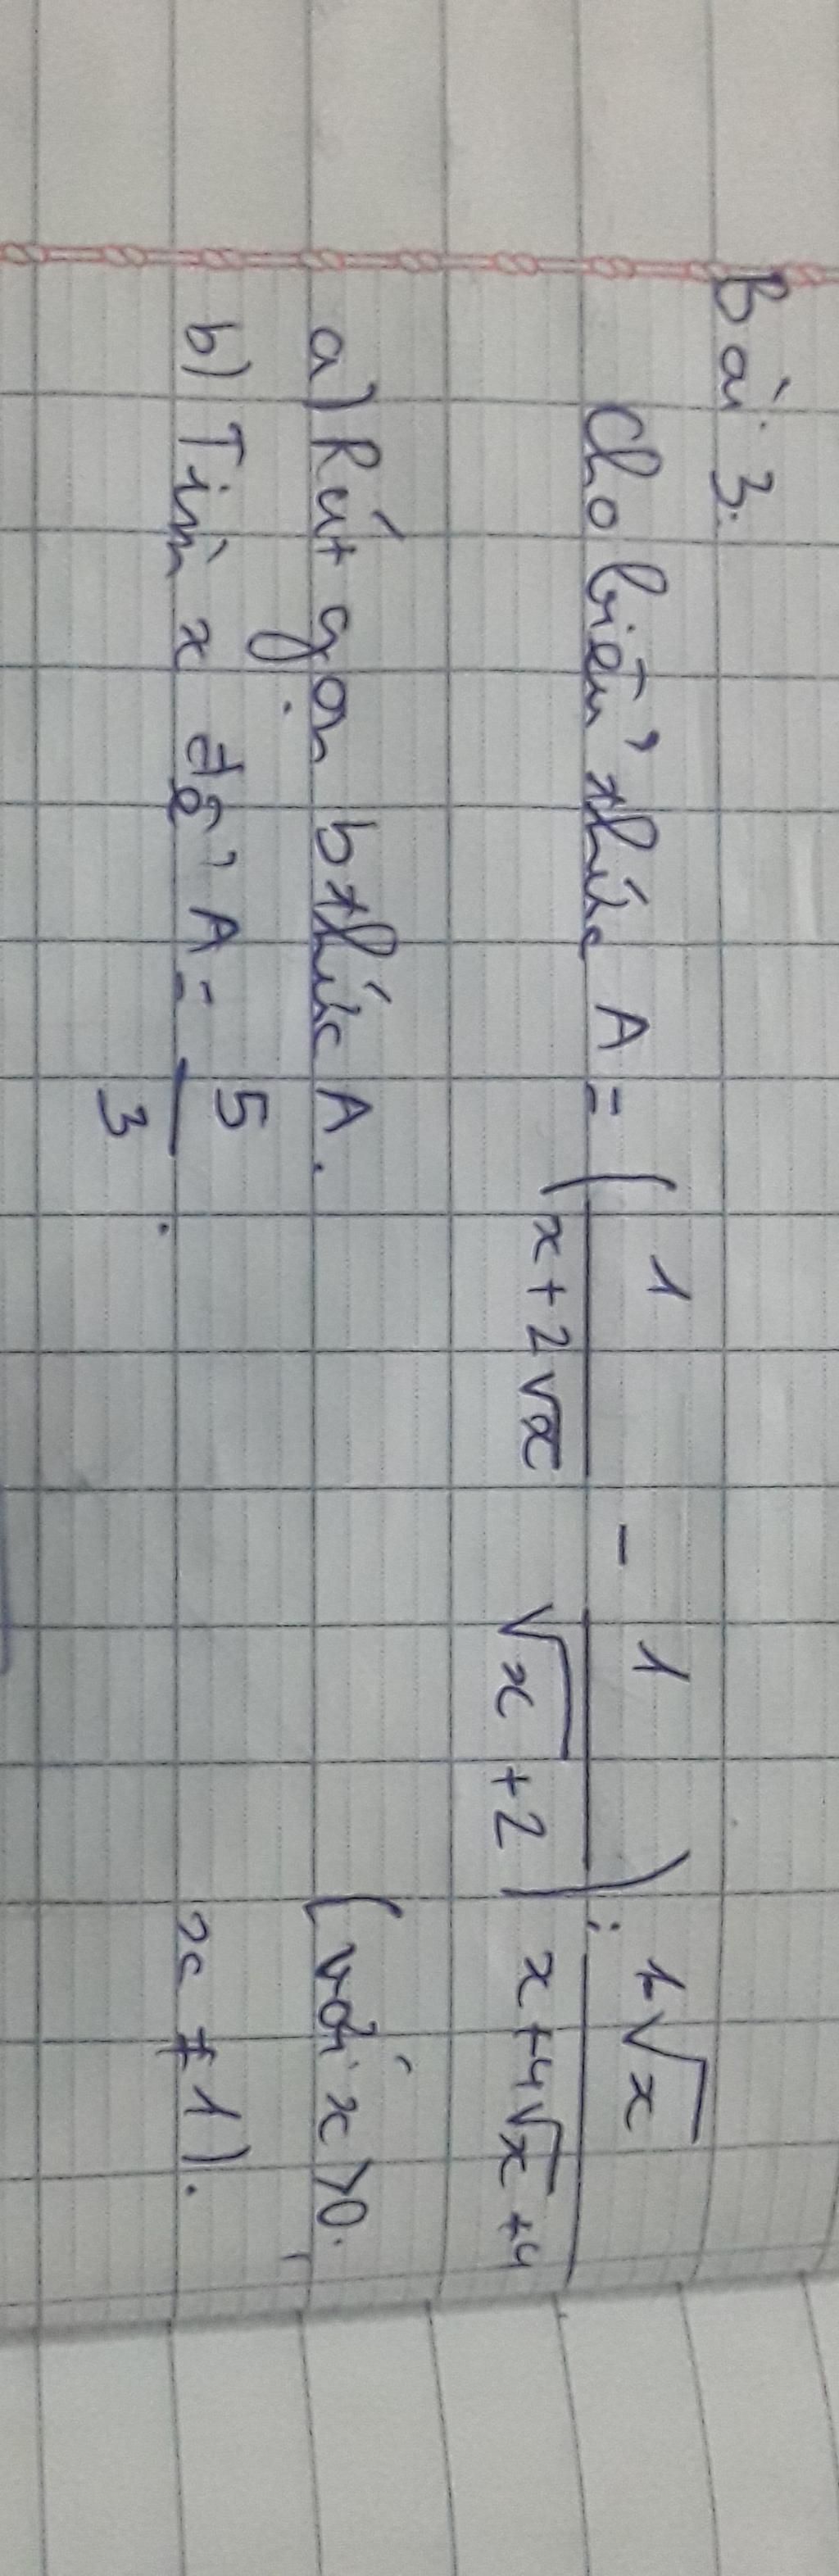 Bài 3.
Cho biểu thức A = (1/(x+2√x) - 1/(√x+2)) : (1-√x)/(x+4√x+4)
(với x>0.
a) Rút gọn bthức A.
x ≠ 1).
b) Tìm x để A = 5/3.